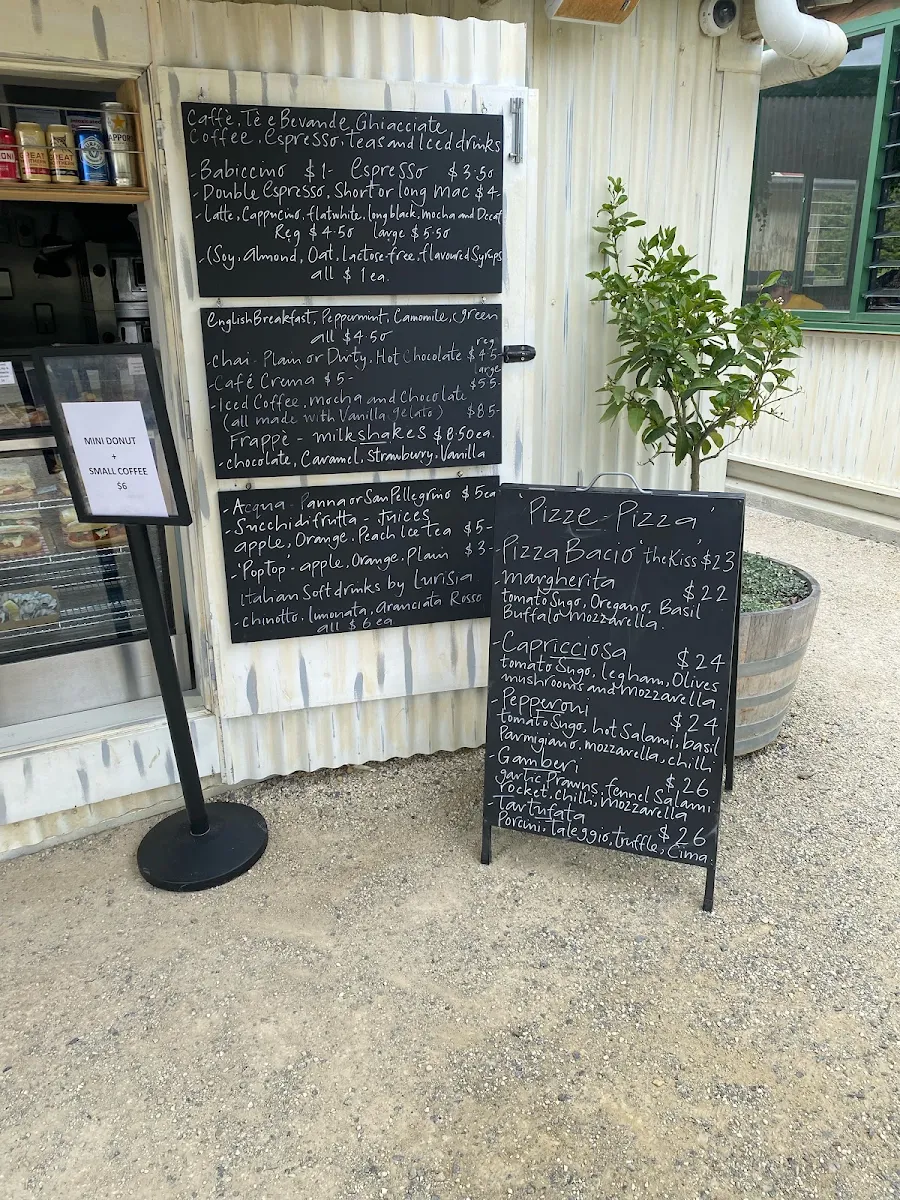 Caffè, Tè e Bevande Ghiacciate
Coffee, Espresso, Teas and Iced drinks
- Babiccino $1- Espresso $3.50
- Double Espresso, Short or long Mac $4-
- Latte, Cappucino, flatwhite, longblack, mocha and Decaf
Reg $4.50 large $5.50
- (Soy, Almond, Oat, Lactose-free, flavoured Syrups
all $1 ea.
English Breakfast, Peppermint, Camomile, Green
all $4.50
reg
- Chai - Plain or Dirty, Hot Chocolate $4.5-
large
$5.5-
- Café Crema $5-
- Iced Coffee, mocha and Chocolate
(all made with Vanilla gelato) $8.5-
Frappè - milkshakes $8.50 ea.
- chocolate, Caramel, Strawburry, Vanilla
- Acqua - Panna or San Pellegrino $5 ea
- Succhi di frutta - Juices
apple, Orange, Peach Ice tea $5-
- 'PopTop' - apple, Orange, Plain $3-
Italian Soft drinks by Lurisia
- chinotto, limonata, aranciata Rosso
all $6 ea
MINI DONUT
+
SMALL COFFEE
$6
'Pizze - Pizza'
- Pizza Bacio 'the Kiss $23
- margherita $22
tomato Sugo, Oregano, Basil
Buffalo mozzarella.
- Capricciosa $24
tomato Sugo, leg ham, Olives
mushrooms and Mozzarella.
- Pepperoni $24
tomato Sugo, hot Salami, basil
Parmigiano, mozzarella, chilli
- Gamberi $26
garlic Prawns, fennel Salami
rocket, chilli, mozzarella
- Tartufata $26
Porcini, Taleggio, truffle, Cima.
GREAT
GREAT
SAPPORO